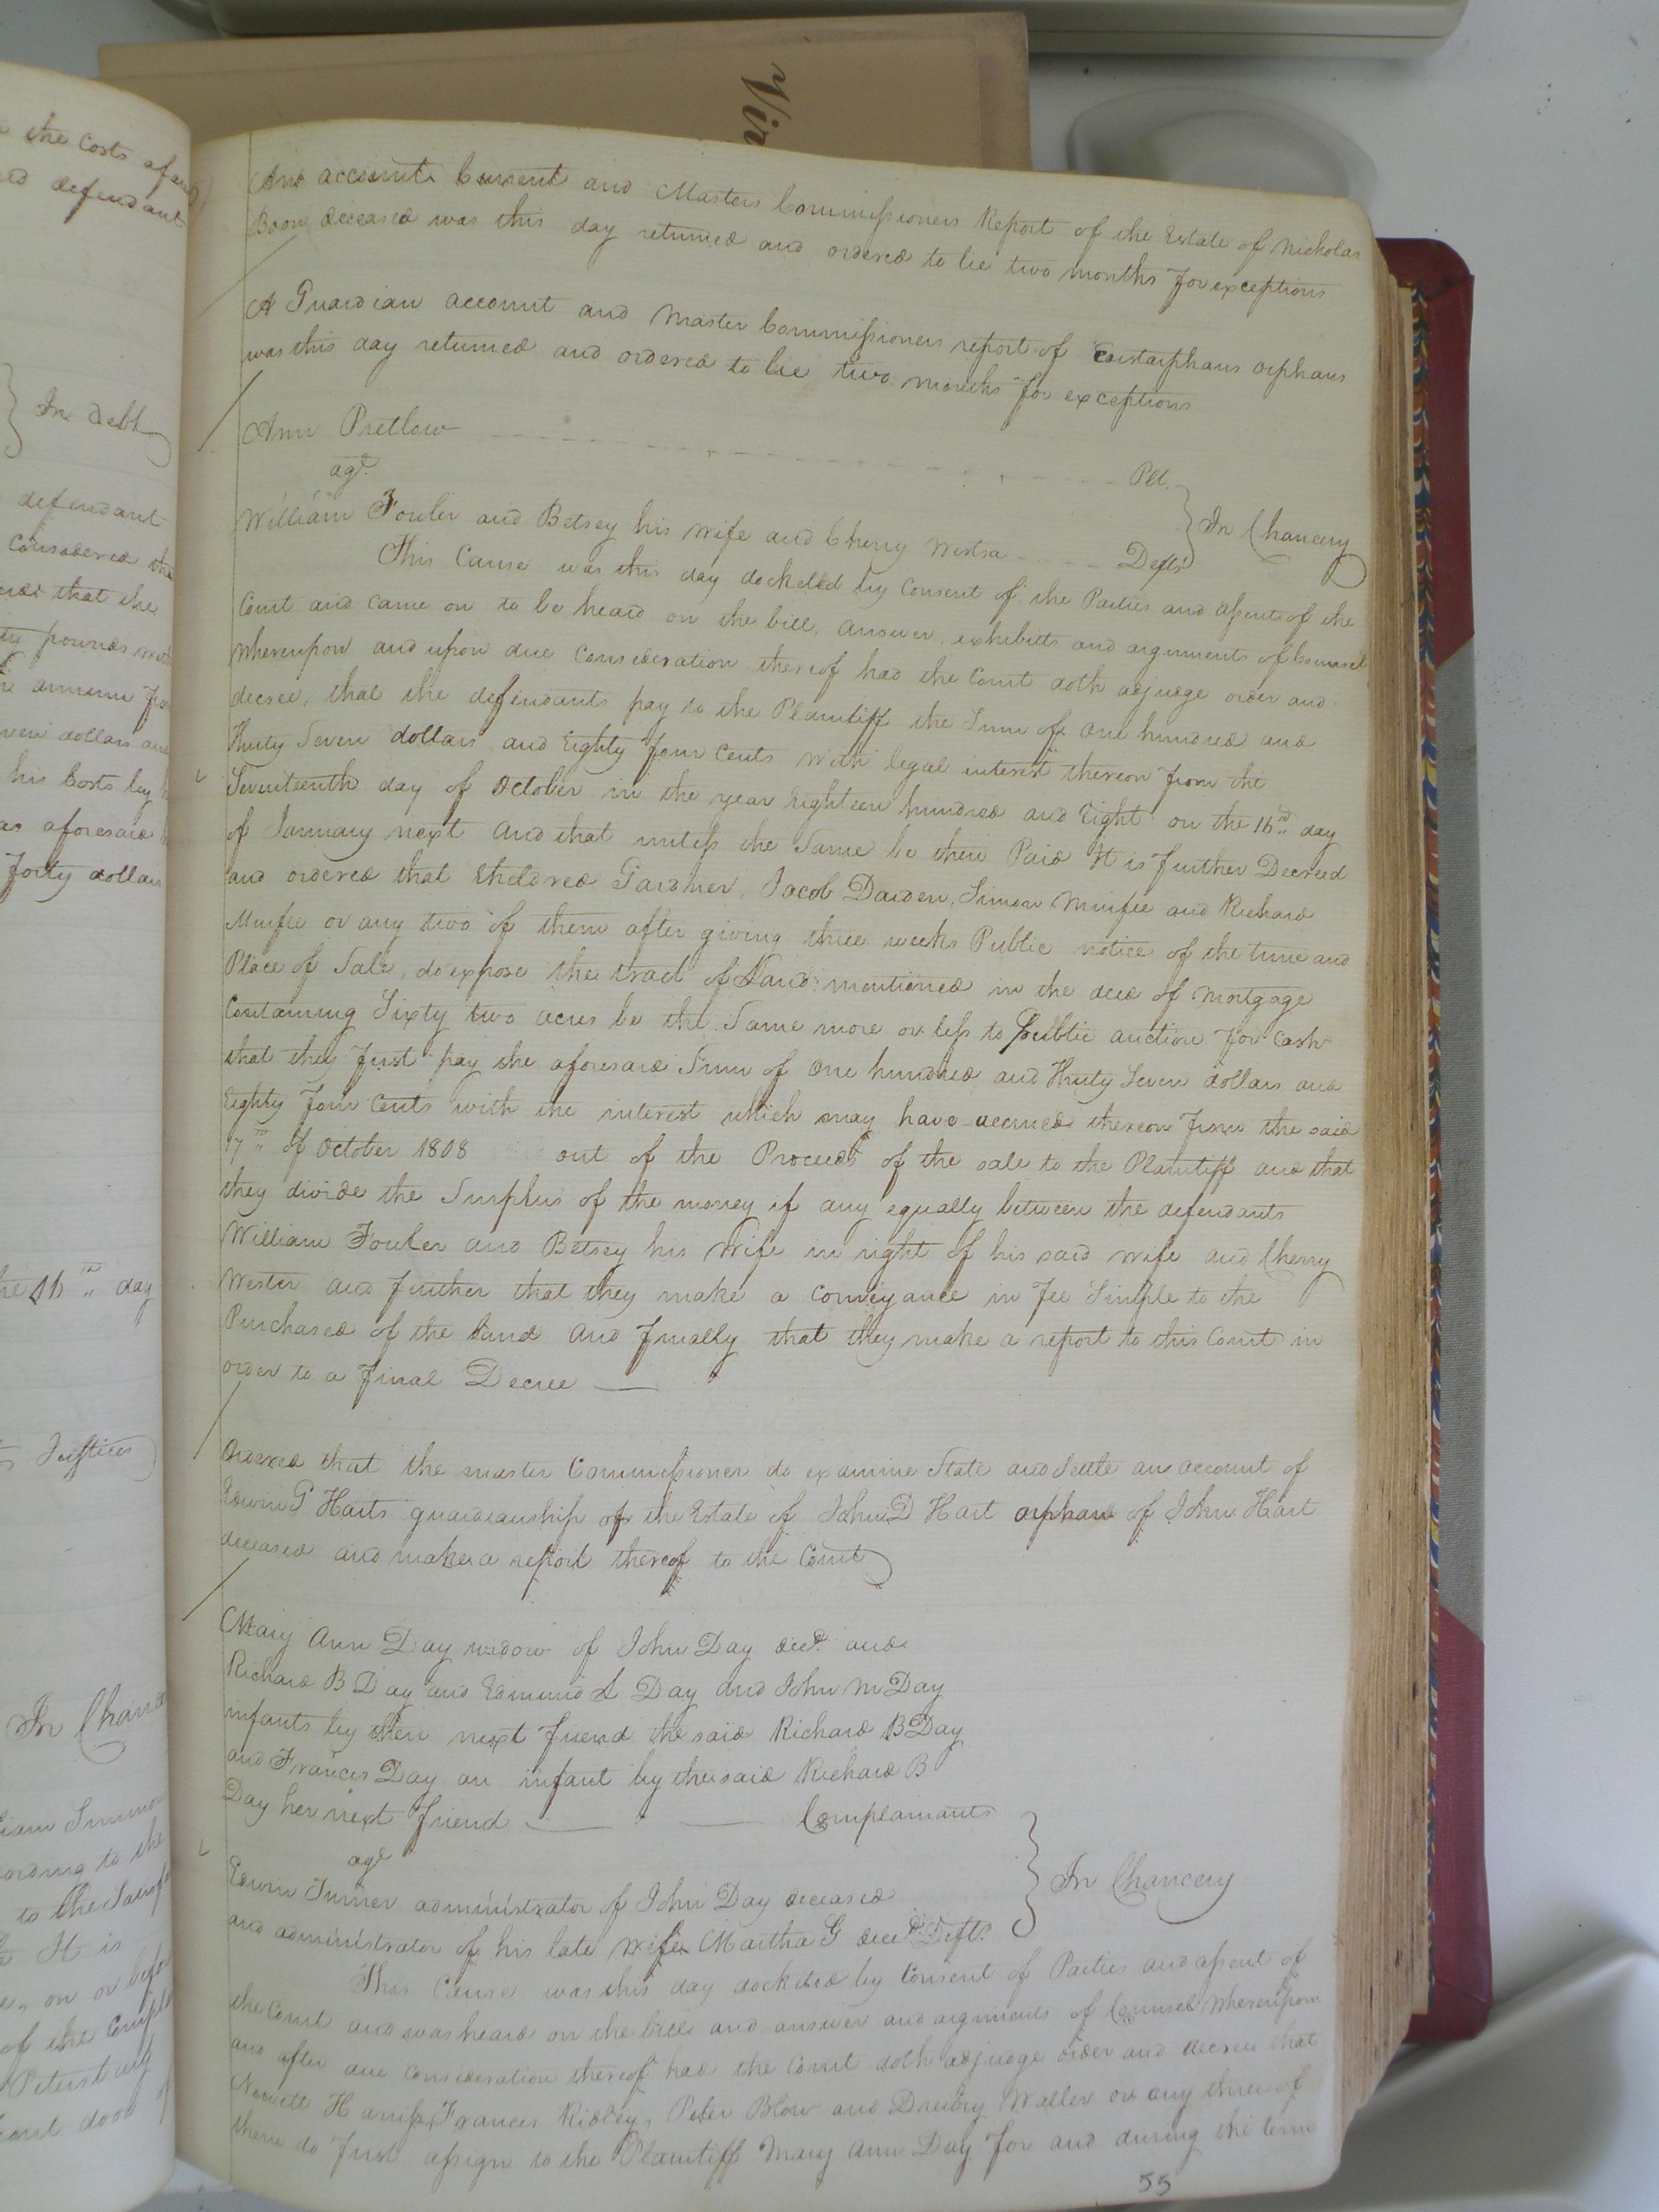 the Costs afores
ed defendant
In debt
defendant
Considered tha
and that the
ty pounds with
annum from
ven dollars and
his Costs by h
as aforesaid
Forty dollars
he 16th day
Justices
In Chance
liam Simmon
ording to the
to the Satisf
It is
on or befor
of the Compl
Petersburg
Court door of
Vir
An account Current and Masters Commissioners Report of the Estate of Nicholas
Boon deceased was this day returned and ordered to lie two months for exceptions
A Guardian account and Master Commissioners report of orphans
was this day returned and ordered to lie two months for exceptions
Ann Pretlow Plt.
agt.
William Fowler and Betsey his wife and Cherry Westra Defts
In Chancery
This Cause was this day docketed by Consent of the Parties and assent of the
Court and came on to be heard on the bill, answer, exhibits and arguments of Counsel
Whereupon and upon due Consideration thereof had the Court doth adjudge order and
decree, that the defendants pay to the Plaintiff the Sum of One hundred and
Thirty Seven dollars and Eighty four Cents with legal interest thereon from the
Seventeenth day of October in the year Eighteen hundred and Eight on the 16th day
of January next and that unless the Same be then Paid It is further Decreed
and ordered that Etheldred Gardner, Jacob Darden, Simon Murfee and Richard
Murfee or any two of them after giving three weeks Public notice of the time and
Place of Sale, do expose the tract of Land mentioned in the deed of Mortgage
Containing Sixty two acres be the Same more or less to Public auction for Cash
that they first pay the aforesaid Sum of One hundred and Thirty Seven dollars and
Eighty four Cents with the interest which may have accrued thereon from the said
17th of October 1808 out of the Proceeds of the sale to the Plaintiff and that
they divide the Surplus of the money if any equally between the defendants
William Fowler and Betsey his Wife in right of his said wife and Cherry
Wester and further that they make a Conveyance in Fee Simple to the
Purchased of the Land and finally that they make a report to this Court in
order to a Final Decree
Ordered that the master Commissioner do examine State and Settle an account of
Edwin G Harts guardianship of the Estate of John D Hart orphan of John Hart
deceased and make a report thereof to the Court
Mary Ann Day widow of John Day decd. and
Richard B Day and Edmund S Day and John M Day
infants by their next friend the said Richard B Day
and Frances Day an infant by the said Richard B
Day her next friend Complainants
agt
Edwin Turner administrator of John Day deceased
and administrator of his late wife Martha G decd. Deft.
In Chancery
This Cause was this day docketed by Consent of Parties and assent of
the Court and was heard on the bill and answer and arguments of Counsel Whereupon
and after due Consideration thereof had the Court doth adjudge order and decree that
Newitt Harris, Frances Ridley, Peter Blow and Drewry Waller or any three of
them do first assign to the Plaintiff Mary Ann Day for and during the term
55